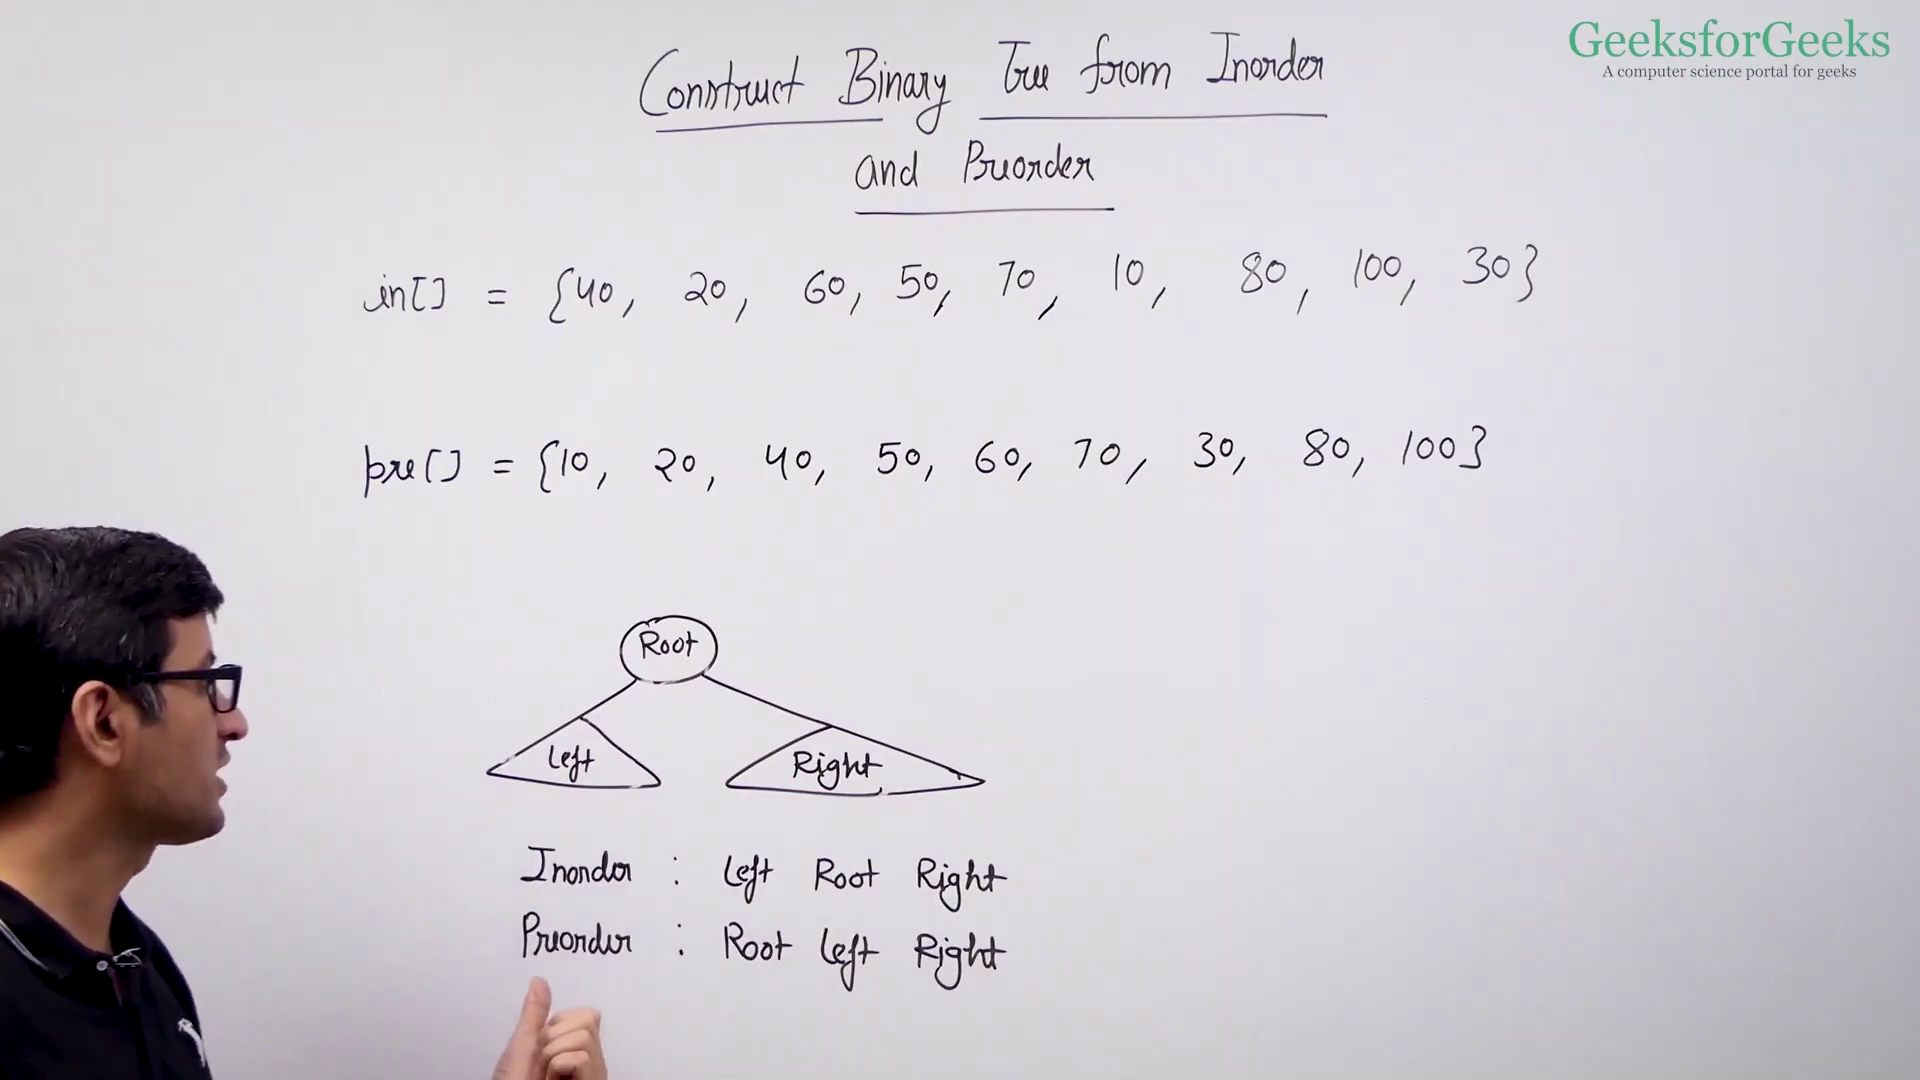 GeeksforGeeks
A computer science portal for geeks
Construct Binary Tree from Inorder
and Preorder
in[] = {40, 20, 60, 50, 70, 10, 80, 100, 30}
pre[] = {10, 20, 40, 50, 60, 70, 30, 80, 100}
Root
Left Right
Inorder : Left Root Right
Preorder : Root Left Right